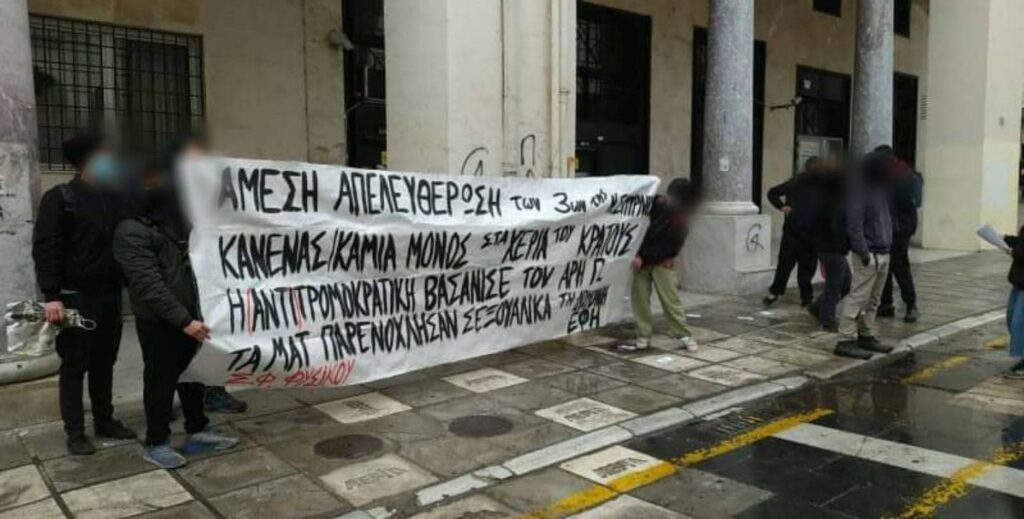 ΑΜΕΣΗ ΑΠΕΛΕΥΘΕΡΩΣΗ των 3ων της
ΚΑΝΕΝΑΣ/ΚΑΜΙΑ ΜΟΝΟΣ στα ΧΕΡΙΑ του ΚΡΑΤΟΥΣ
Η ΑΝΤΙΤΡΟΜΟΚΡΑΤΙΚΗ ΒΑΣΑΝΙΣΕ ΤΟΝ ΑΡΗ Γ.
ΤΑ ΜΑΤ ΠΑΡΕΝΟΧΛΗΣΑΝ ΣΕΞΟΥΑΛΙΚΑ τη
ΕΦΗ
Σ.Φ. ΦΥΣΙΚΟΥ